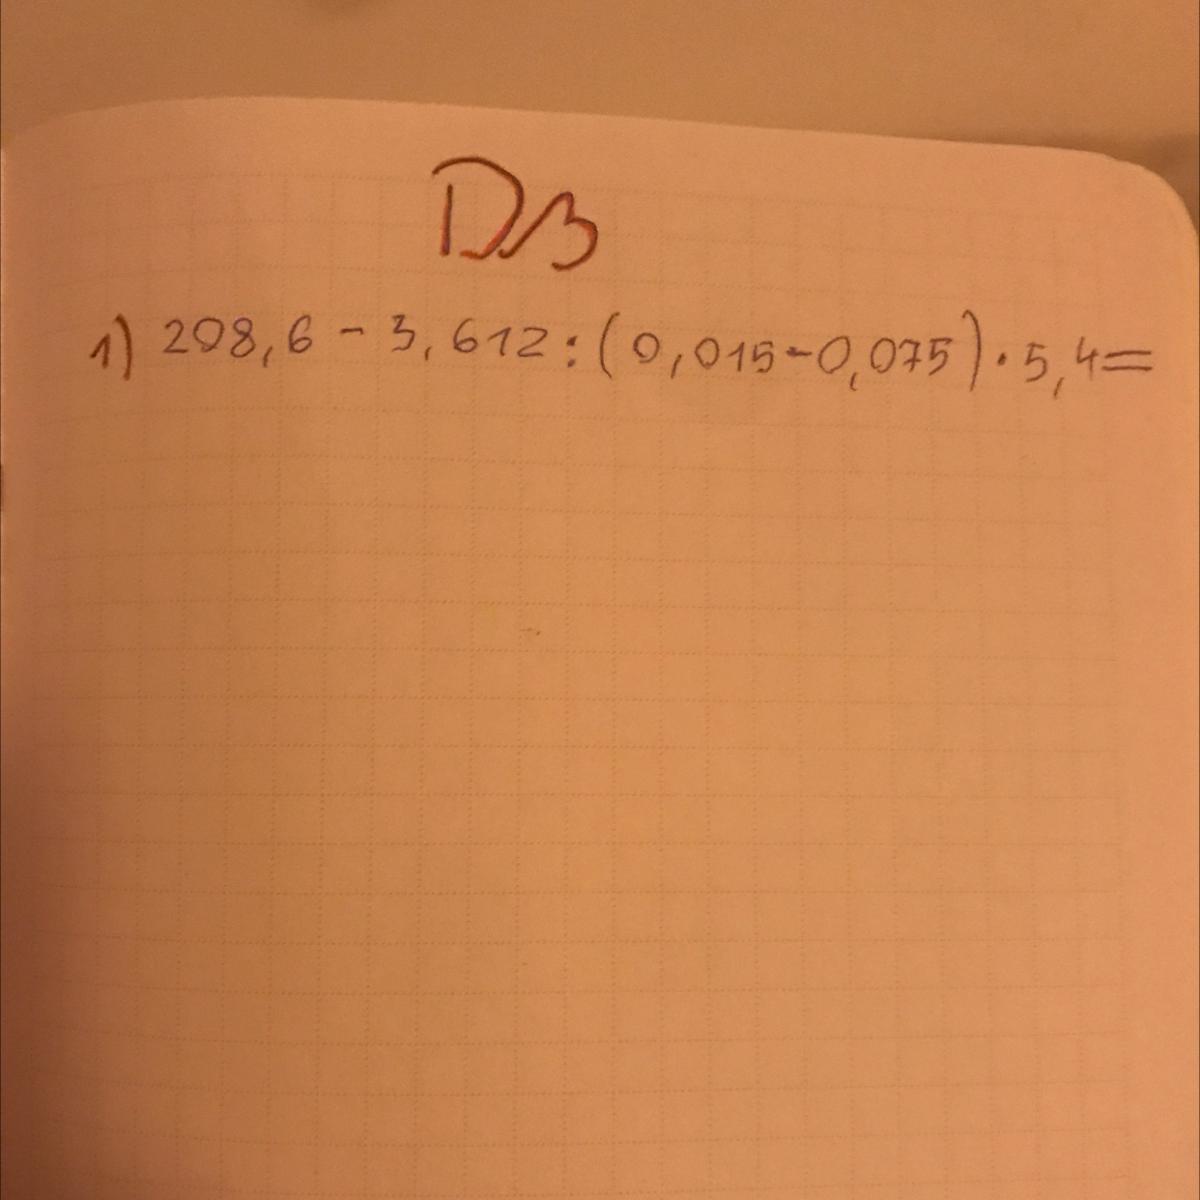 DЗ
1) 208,6 - 3,612 : (0,015-0,075) · 5,4=